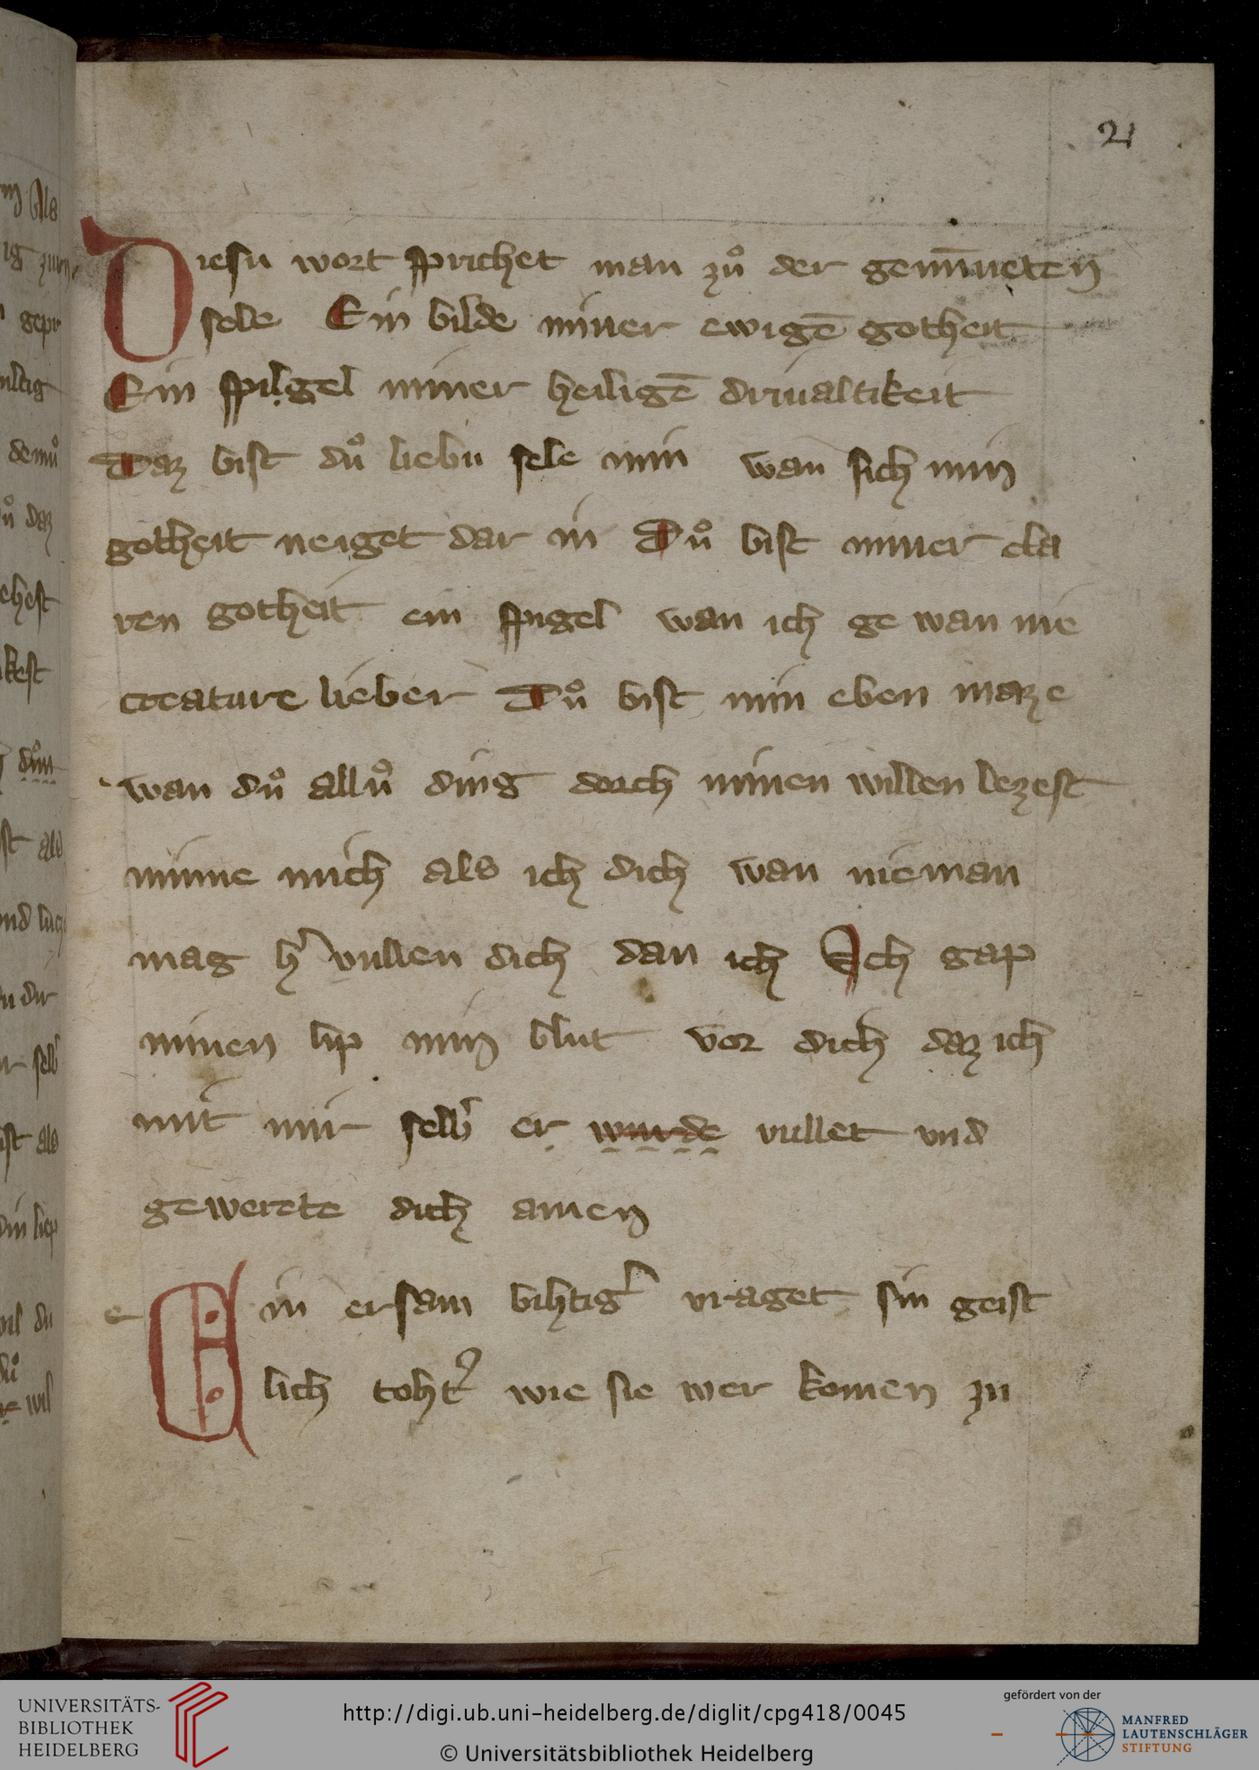 21
Diesu wort sprichet man zuͦ der geminneten
sele Ein bilde miner ewigē gotheit
Ein spilgel miner heiligē driualtikeit
Daz bist duͦ liebu sele min wan sich min
gotheit neiget dar in Duͦ bist miner cla
ren gotheit ein spigel wan ich ge wan nie
creature lieber Duͦ bist min eben maze
wan duͦ alluͦ ding dorch minen willen lezest
minne mich als ich dich wan nieman
mag h' vullen dich dan ich Ich gap
minen lip min blut vor dich daz ich
mit mir selb' er wurde vullet vnd
gewerete dich amen
e Ein ersam bihtig' vraget sin geist
lich toht' wie sie wer komen zu
UNIVERSITÄTS-
BIBLIOTHEK
HEIDELBERG
http://digi.ub.uni-heidelberg.de/diglit/cpg418/0045
© Universitätsbibliothek Heidelberg
gefördert von der
MANFRED
LAUTENSCHLÄGER
STIFTUNG